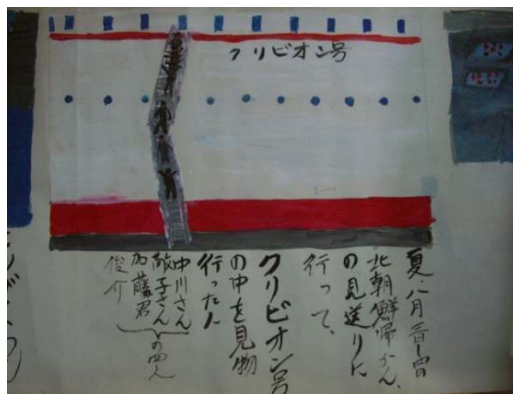 クリビオン号
夏・八月
北朝鮮帰かん、
の見送りに
行って、
クリビオン号
の中を見物
行った人
中川さん
敬子さん
加藤君
俊介
の四人